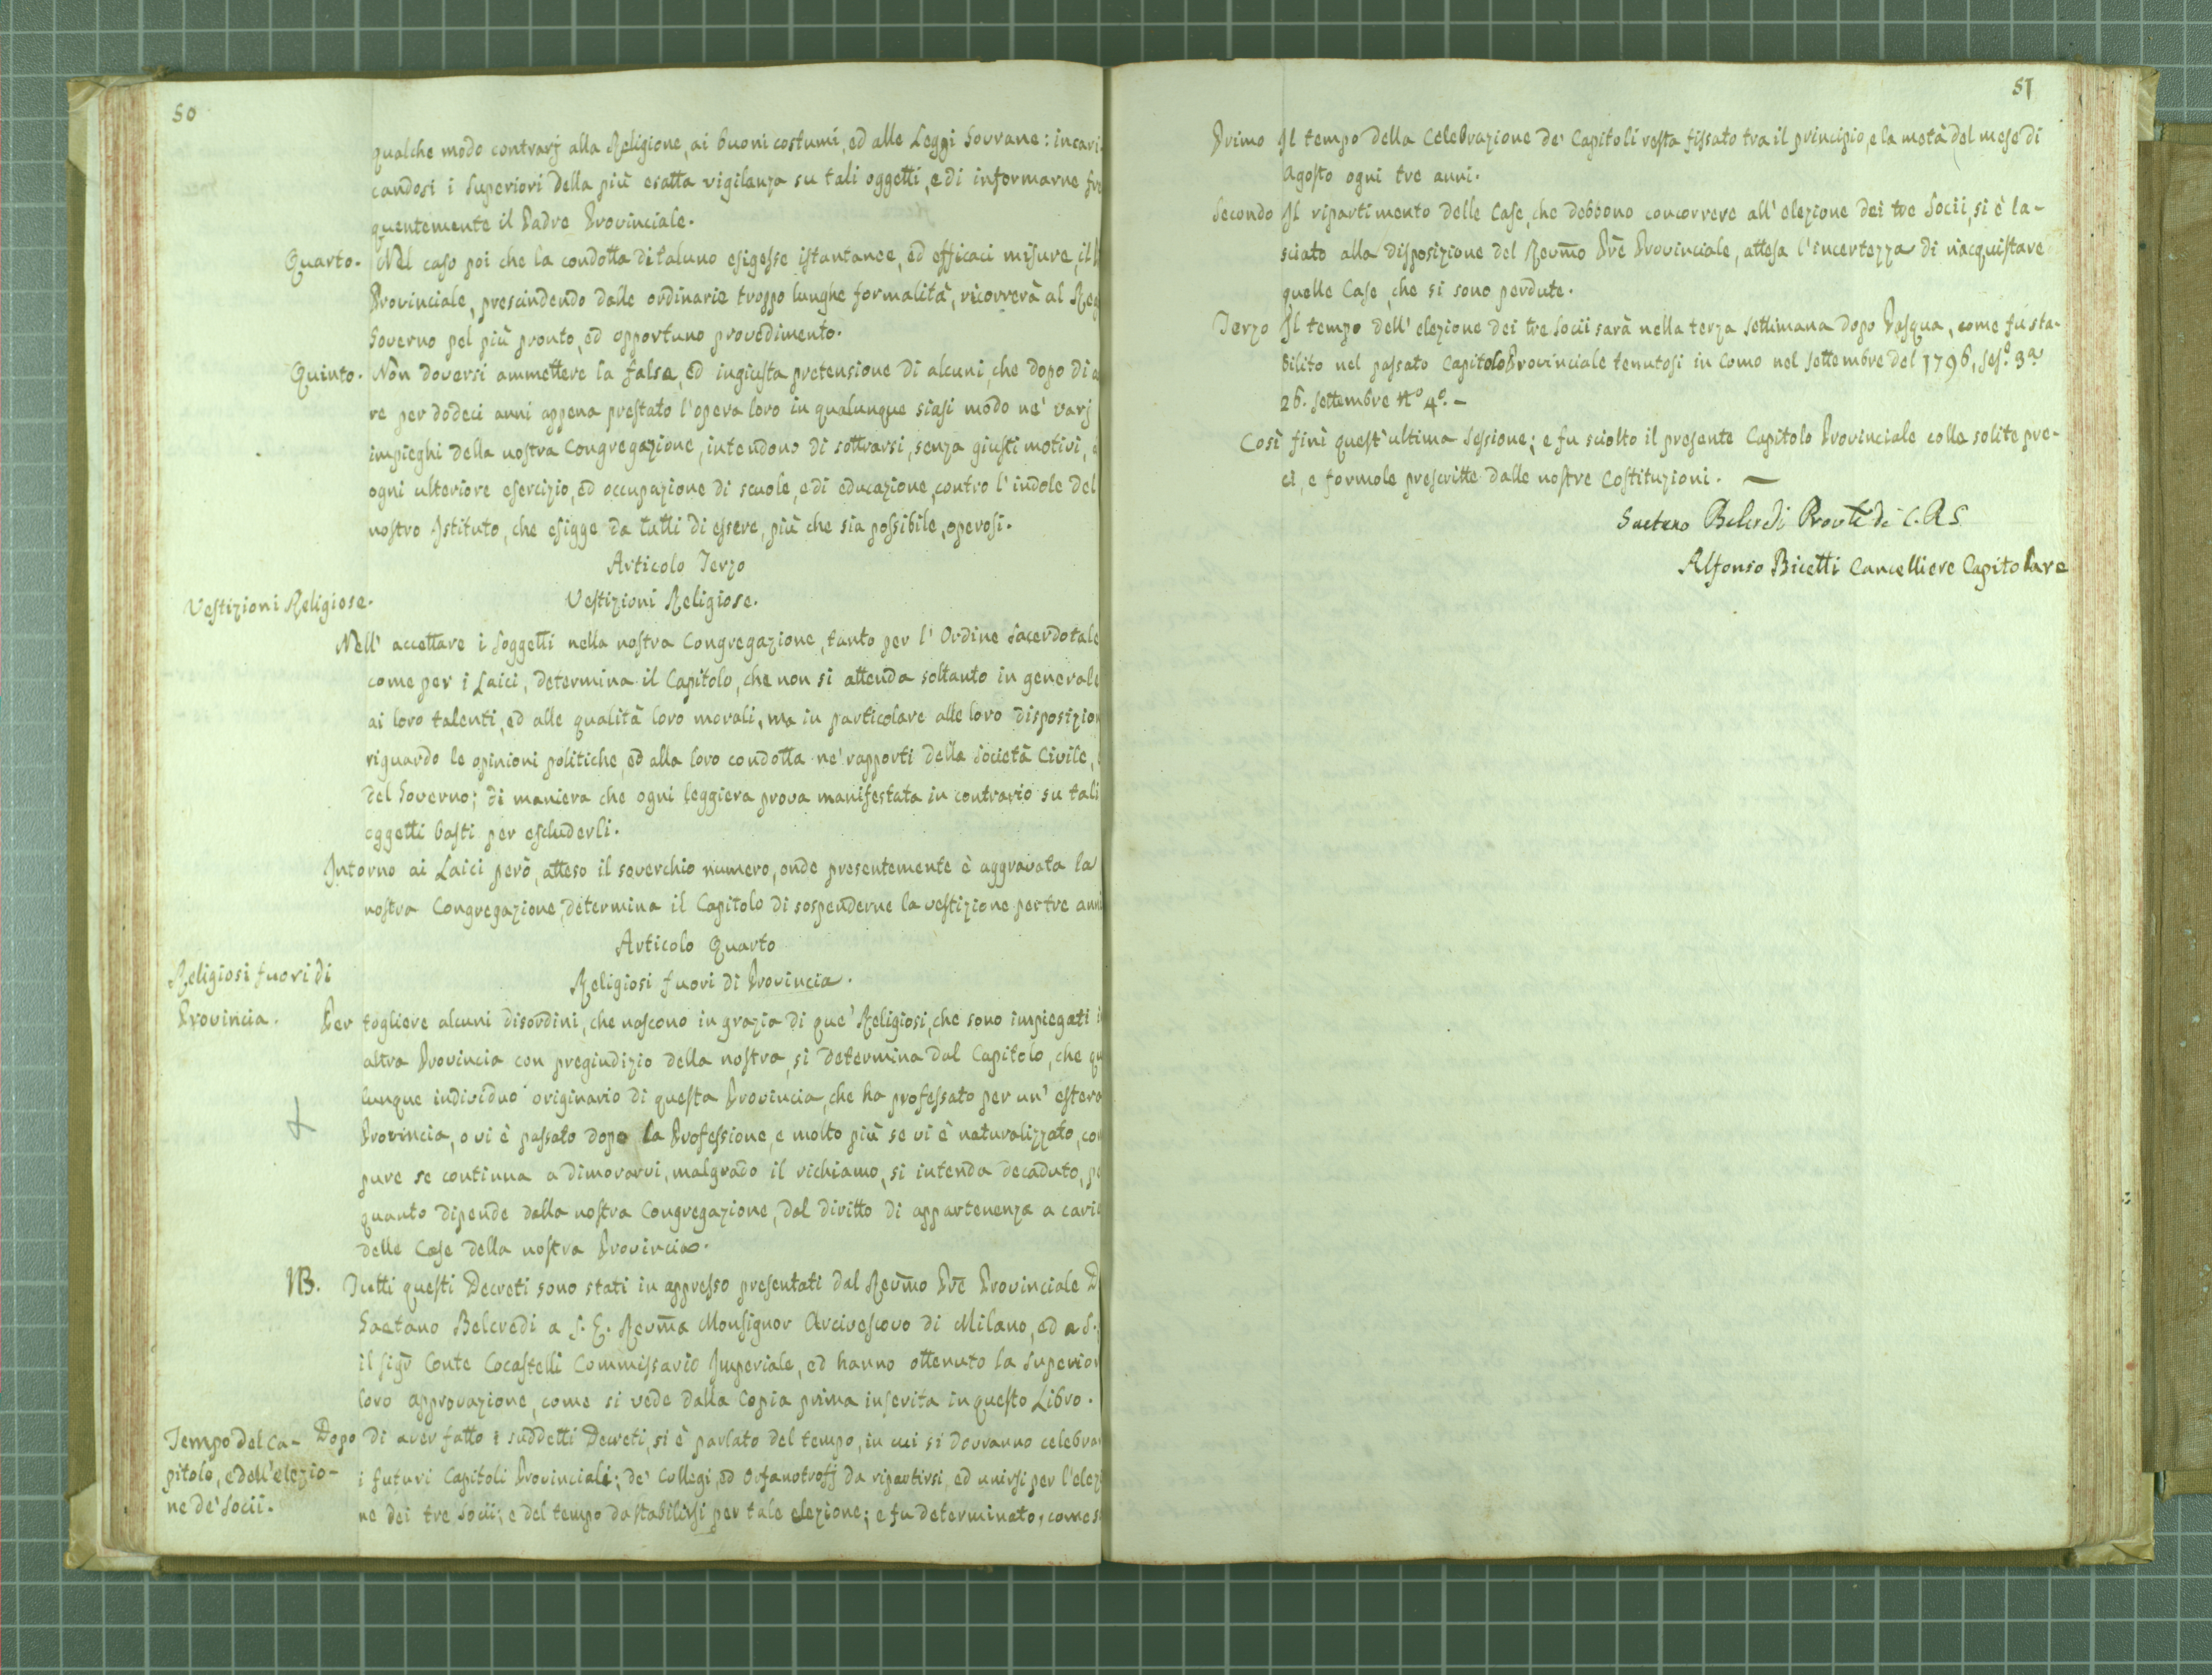 50
qualche modo contrarj alla Religione, ai buoni costumi, ed alle Leggi Sovrane: incari
candosi i Superiori della più esatta vigilanza su tali oggetti, e di informarne fre
quentemente il Padre Provinciale.
Quarto. Nel caso poi che la condotta di taluno esigesse istantanee, ed efficaci misure, il
Provinciale, prescindendo dalle ordinarie troppo lunghe formalità, ricorrerà al Reg
Governo pel più pronto, ed opportuno provedimento.
Quinto. Non doversi ammettere la falsa, ed ingiusta pretensione di alcuni, che dopo di a
re per dodeci anni appena prestato l'opera loro in qualunque siasi modo ne' varj
impieghi della nostra Congregazione, intendono di sottrarsi, senza giusti motivi,
ogni ulteriore esercizio, ed occupazione di scuole, e di educazione, contro l'indole del
nostro Istituto, che esigge da tutti di essere, più che sia possibile, operosi.
Articolo Terzo
Vestizioni Religiose.
Vestizioni Religiose.
Nell' accettare i Soggetti nella nostra Congregazione, tanto per l'Ordine Sacerdotale
come per i Laici, determina il Capitolo, che non si attenda soltanto in generale
ai loro talenti, ed alle qualità loro morali, ma in particolare alle loro disposizion
riguardo le opinioni politiche, ed alla loro condotta ne' rapporti della Società Civile,
del Governo; di maniera che ogni leggiera prova manifestata in contrario su tali
oggetti basti per escluderli.
Intorno ai Laici però, atteso il soverchio numero, onde presentemente è aggravata la
nostra Congregazione, determina il Capitolo di sospenderne la vestizione per tre anni
Articolo Quarto
Religiosi fuori di
Provincia.
Religiosi fuori di Provincia.
Per togliere alcuni disordini, che nascono in grazia di que' Religiosi, che sono impiegati i
altra Provincia con pregiudizio della nostra, si determina dal Capitolo, che qu
lunque individuo originario di questa Provincia, che ha professato per un' estera
Provincia, o vi è passato dopo la Professione, e molto più se vi è naturalizzato, co
pure se continua a dimorarvi, malgrado il richiamo, si intenda decaduto, pe
quanto dipende dalla nostra Congregazione, dal diritto di appartenenza a cari
delle Case della nostra Provincia.
NB. Tutti questi Decreti sono stati in appresso presentati dal Revm̃o Prẽ Provinciale D
Gaetano Belcredi a S. E. Revm̃a Monsignor Arcivescovo di Milano, ed a S.
il Sigr̃ Conte Cocastelli Commissario Imperiale, ed hanno ottenuto la Superior
loro approvazione, come si vede dalla Copia prima inserita in questo Libro.
Tempo del Ca-
pitolo, e dell'elezio-
ne de' Socii.
Dopo di aver fatto i suddetti Decreti, si è parlato del tempo, in cui si dovranno celebra
i futuri Capitoli Provinciali; de' Collegj, ed Orfanotrofj da ripartirsi, ed unirsi per l'elez
ne dei tre Socii; e del tempo da stabilirsi per tale elezione; e fu determinato, come s
51
Primo Il tempo della Celebrazione de' Capitoli resta fissato tra il principio, e la metà del mese di
Agosto ogni tre anni.
Secondo Il ripartimento delle Case, che debbono concorrere all' elezione dei tre Socii, si è la-
sciato alla disposizione del Revm̃o Prẽ Provinciale, attesa l'incertezza di riacquistare
quelle Case, che si sono perdute.
Terzo Il tempo dell' elezione dei tre Socii sarà nella terza settimana dopo Pasqua, come fu sta-
bilito nel passato Capitolo Provinciale tenutosi in Como nel Settembre del 1796, Ses.e 3a
26. Settembre No 4o. —
Così finì quest'ultima Sessione; e fu sciolto il presente Capitolo Provinciale colle solite pre-
ci, e formole prescritte dalle nostre Costituzioni. —
Gaetano Belcredi Provle de C.R.S.
Alfonso Bicetti Cancelliere Capitolare